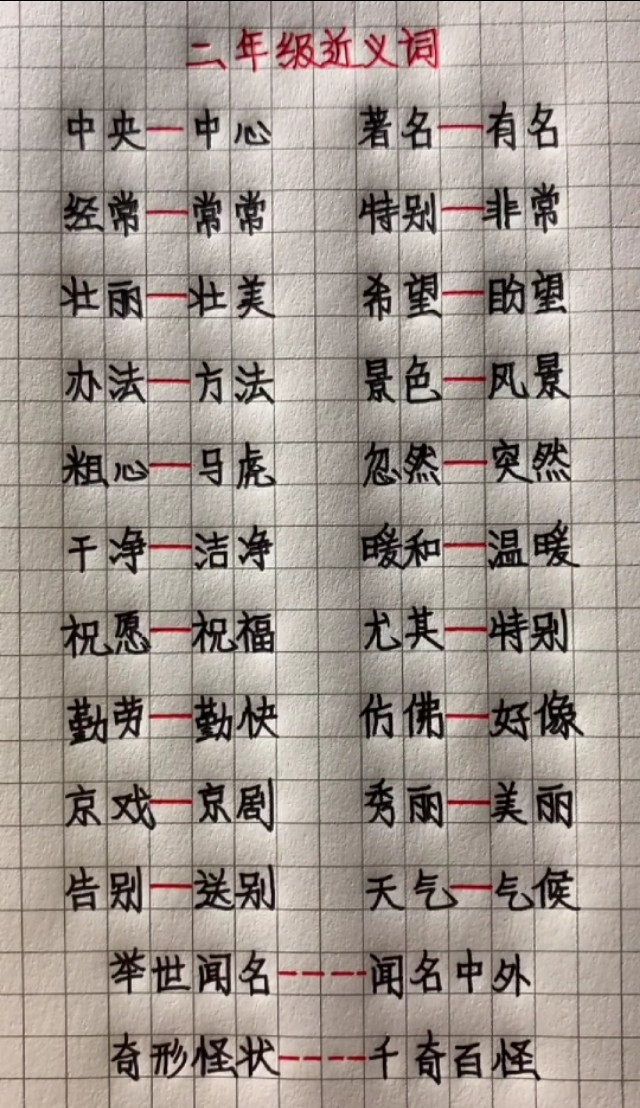 二年级近义词
中央—中心 著名—有名
经常—常常 特别—非常
壮丽—壮美 希望—盼望
办法—方法 景色—风景
粗心—马虎 忽然—突然
干净—洁净 暖和—温暖
祝愿—祝福 尤其—特别
勤劳—勤快 仿佛—好像
京戏—京剧 秀丽—美丽
告别—送别 天气—气候
举世闻名----闻名中外
奇形怪状----千奇百怪